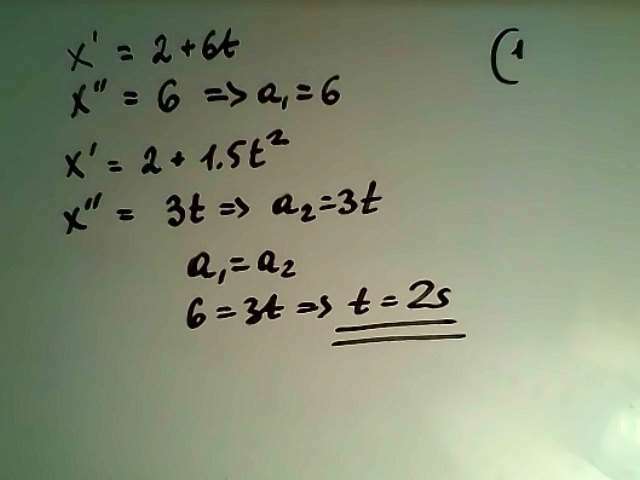 (1
x' = 2 + 6t
x" = 6 => a₁ = 6
x' = 2 + 1.5t²
x" = 3t => a₂ = 3t
a₁ = a₂
6 = 3t => t = 2s